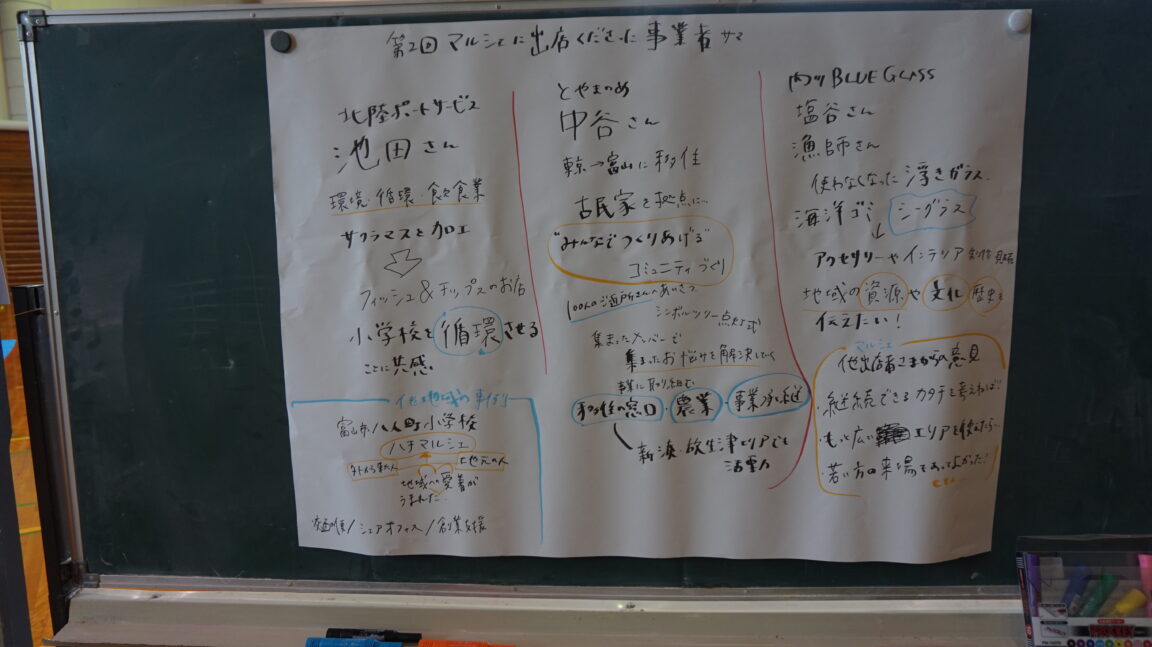 第2回 マルシェに出店くださった事業者サマ
北陸ポートサービス
池田さん
環境・循環・飲食業
サクラマスを加工
フィッシュ&チップスのお店
小学校を循環させる
ことに共感
他地域の事例
富山市八人町小学校
ハチマルシェ
外から来た人 地元の人
地域への愛着が
うまれた
/シェアオフィス/創業支援
とやまのめ
中谷さん
東京→富山に移住
古民家を拠点に…
"みんなでつくりあげる"
コミュニティづくり
100人のご近所さんへあいさつ
シンボルツリー点灯式
集まったメンバーで
集まったお悩みを解決していく
事業に取り組む
移住の窓口・農業・事業承継
新湊・放生津エリアでも
活動
内川 BLUE GLASS
塩谷さん
漁師さん
使わなくなった浮きガラス
海洋ゴミ シーグラス
↓
アクセサリーやインテリア 制作販売
地域の資源や文化 歴史を
伝えたい!
マルシェ
他出店者さまからの意見
・継続できるカタチを考えねば!
・もっと広い エリアを使えたら…
・若い方の来場もあってよかった!